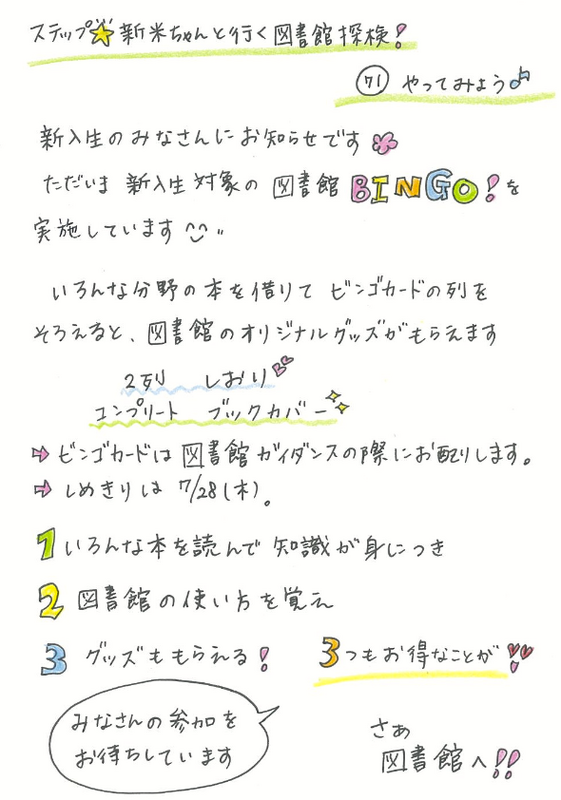 ステップ☆新米ちゃんと行く図書館探検!
㉑ やってみよう♪
新入生のみなさんにお知らせです
ただいま 新入生対象の 図書館 BINGO!を
実施しています
いろんな分野の本を借りて ビンゴカードの列を
そろえると、図書館のオリジナルグッズがもらえます
2列 しおり
コンプリート ブックカバー
⇒ ビンゴカードは 図書館ガイダンスの際にお配りします。
⇒ しめきりは 7/28(木)。
1 いろんな本を読んで 知識が身につき
2 図書館の使い方を覚え
3 グッズももらえる!
3つもお得なことが!!
みなさんの参加を
お待ちしています
さあ
図書館へ!!